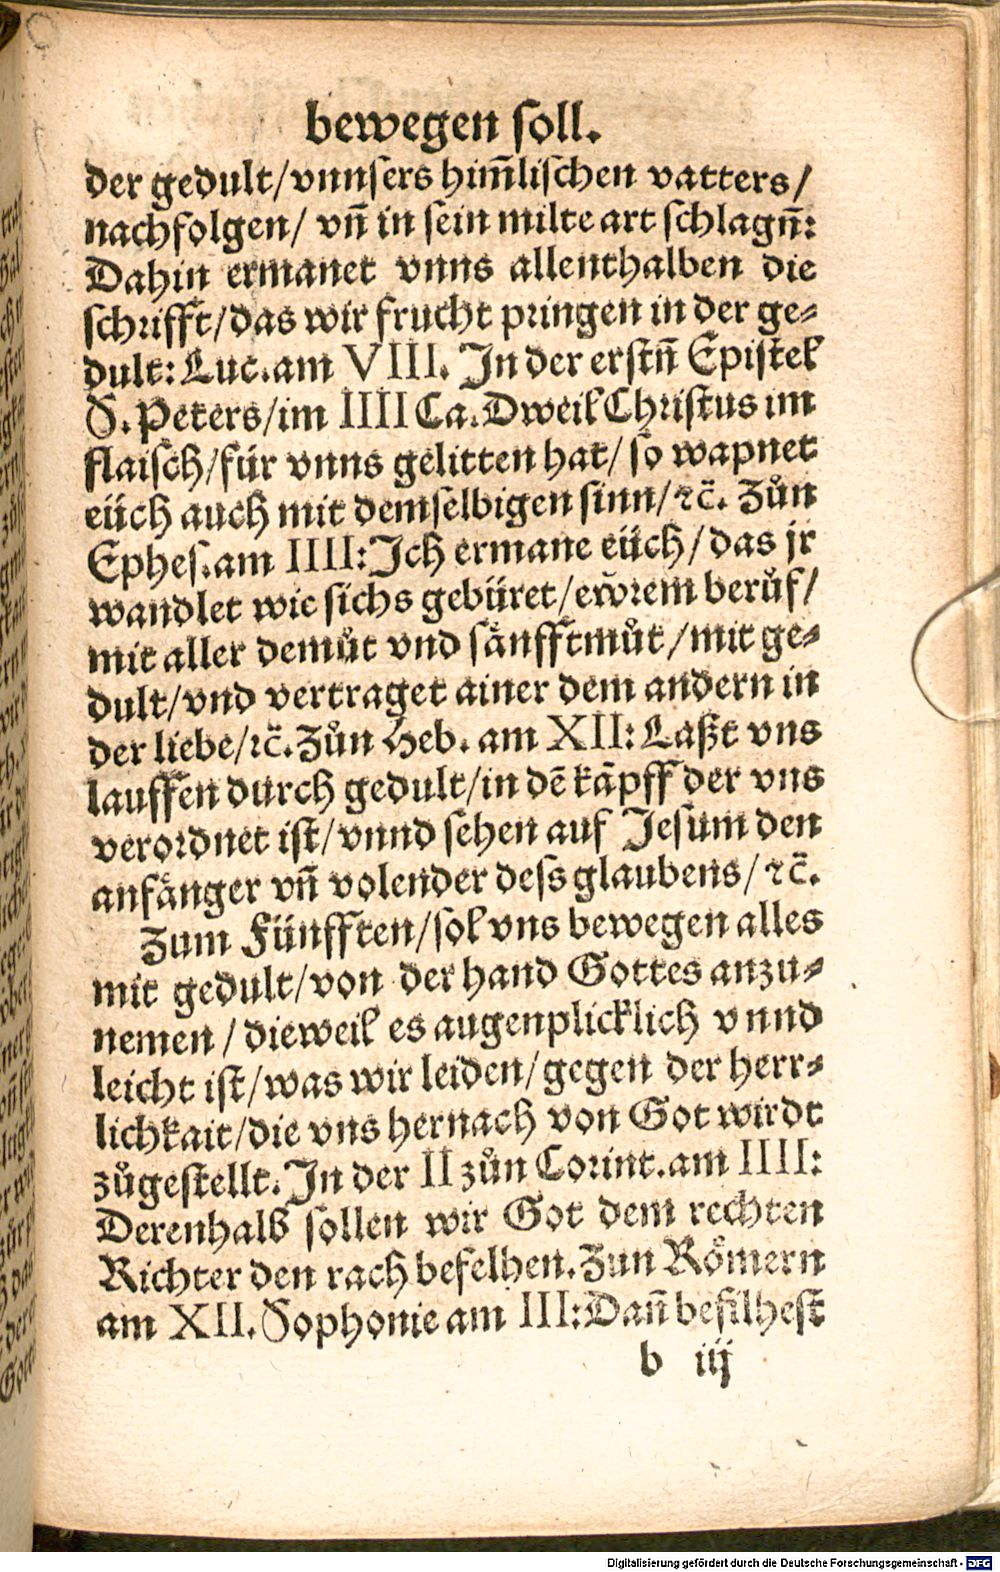 bewegen soll.
der gedult/vnnsers him̄lischen vatters/
nachfolgen/ vn̄ in sein milte art schlagn̄:
Dahin ermanet vnns allenthalben die
schrifft/das wir frucht pringen in der ge⸗
dult: Luc.am VIII. In der erstn̄ Epistel
S. Peters/im IIII Ca. Dweil Christus im
flaisch/für vnns gelitten hat/ so wapnet
eüch auch mit demselbigen sinn/ ꝛc̄. Zůn
Ephes.am IIII: Ich ermane eüch/ das jr
wandlet wie sichs gebüret/ ew̄rem berůf/
mit aller demůt vnd sånfftmůt/mit ge⸗
dult/vnd vertraget ainer dem andern in
der liebe/ꝛc̄. Zůn Heb. am XII: Laßt vns
lauffen durch gedult/in dē kāpff der vns
verordnet ist/vnnd sehen auf Jesum den
anfånger vn̄ volender dess glaubens/ ꝛc̄.
Zum Fünfften/sol vns bewegen alles
mit gedult/von der hand Gottes anzu⸗
nemen / dieweil es augenplicklich vnnd
leicht ist/was wir leiden/gegen der herr⸗
lichkait/die vns hernach von Got wirdt
zůgestellt. In der II zůn Corint.am IIII:
Derenhalb sollen wir Got dem rechten
Richter den rach befelhen. Zun Rômern
am XII. Sophonie am III: Dan̄ befilhest
b iij
Digitalisierung gefördert durch die Deutsche Forschungsgemeinschaft - DFG